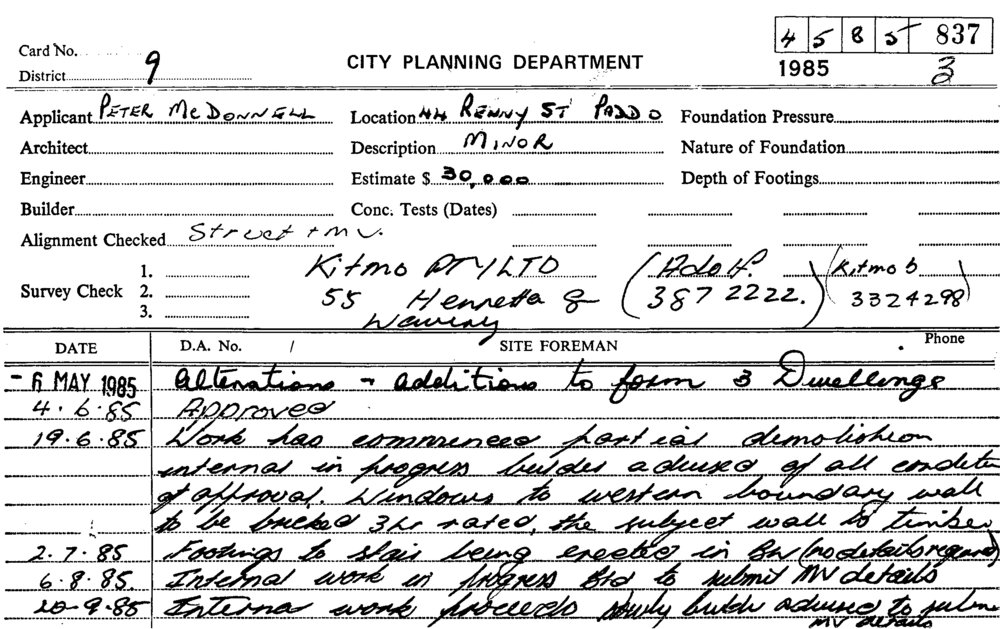 4 5 8 5 837
Card No.
CITY PLANNING DEPARTMENT
1985 3
District 9
Applicant PETER McDONNELL Location 44 RENNY ST PADDO Foundation Pressure
Architect Description MINOR Nature of Foundation
Engineer Estimate $ 30,000 Depth of Footings
Builder Conc. Tests (Dates)
Alignment Checked Street + MV.
1. Kitmo PTY LTD (Adolf. (Kitmo b
Survey Check 2. 55 Henretta 3872222.) 3324298)
3. Waverly
DATE D.A. No. / SITE FOREMAN Phone
- 6 MAY 1985 Alterations + additions to form 3 Dwellings
4.6.85 Approved
19.6.85 Work has commenced partial demolition
internal in progress builder advised of all condition
of approval. Windows to western boundary wall
to be bricked 3hr rated, the subject wall is timber
2.7.85 Footings to stair being erected in BW (no details required)
6.8.85 Internal work in progress Bld to submit MV details
20-9.85 Internal work proceeds slowly builder advised to submit
MV details